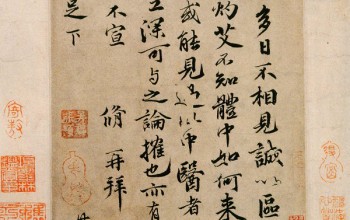 多日不相見誠以區
灼艾不知體中如何来
或能見過此中醫者
工深可与之論搉也亦有
不宣 脩再拜
足下